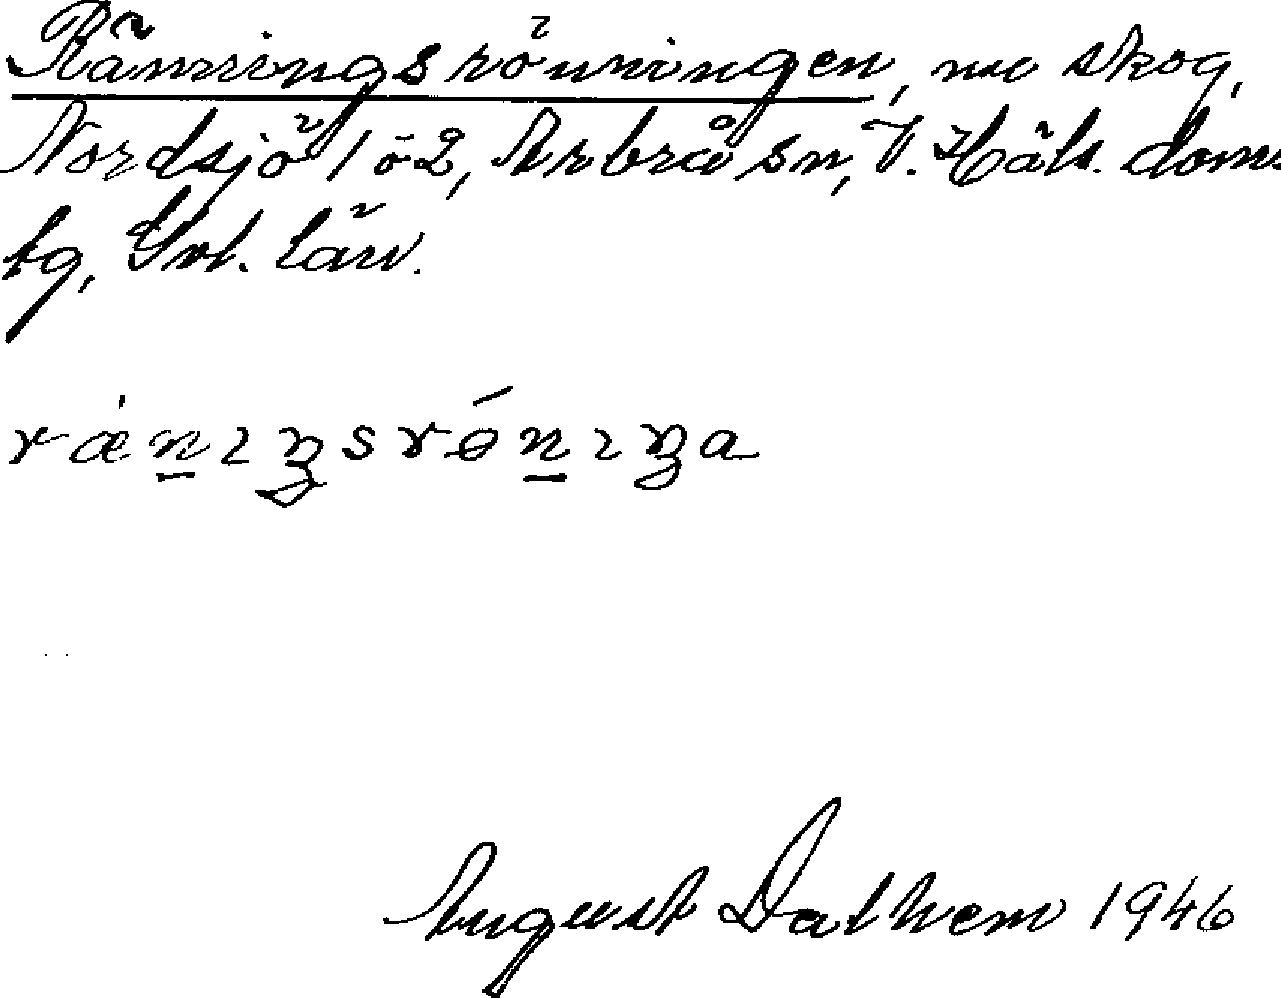 Ränningsrönningen, nu skog,
Nordsjö 1 o 2, Arbrå sn, V. Häls. doms
tg, Gvl. län.
rǽn̲ıŋsrǿn̲ıŋa
August Dathem 1946